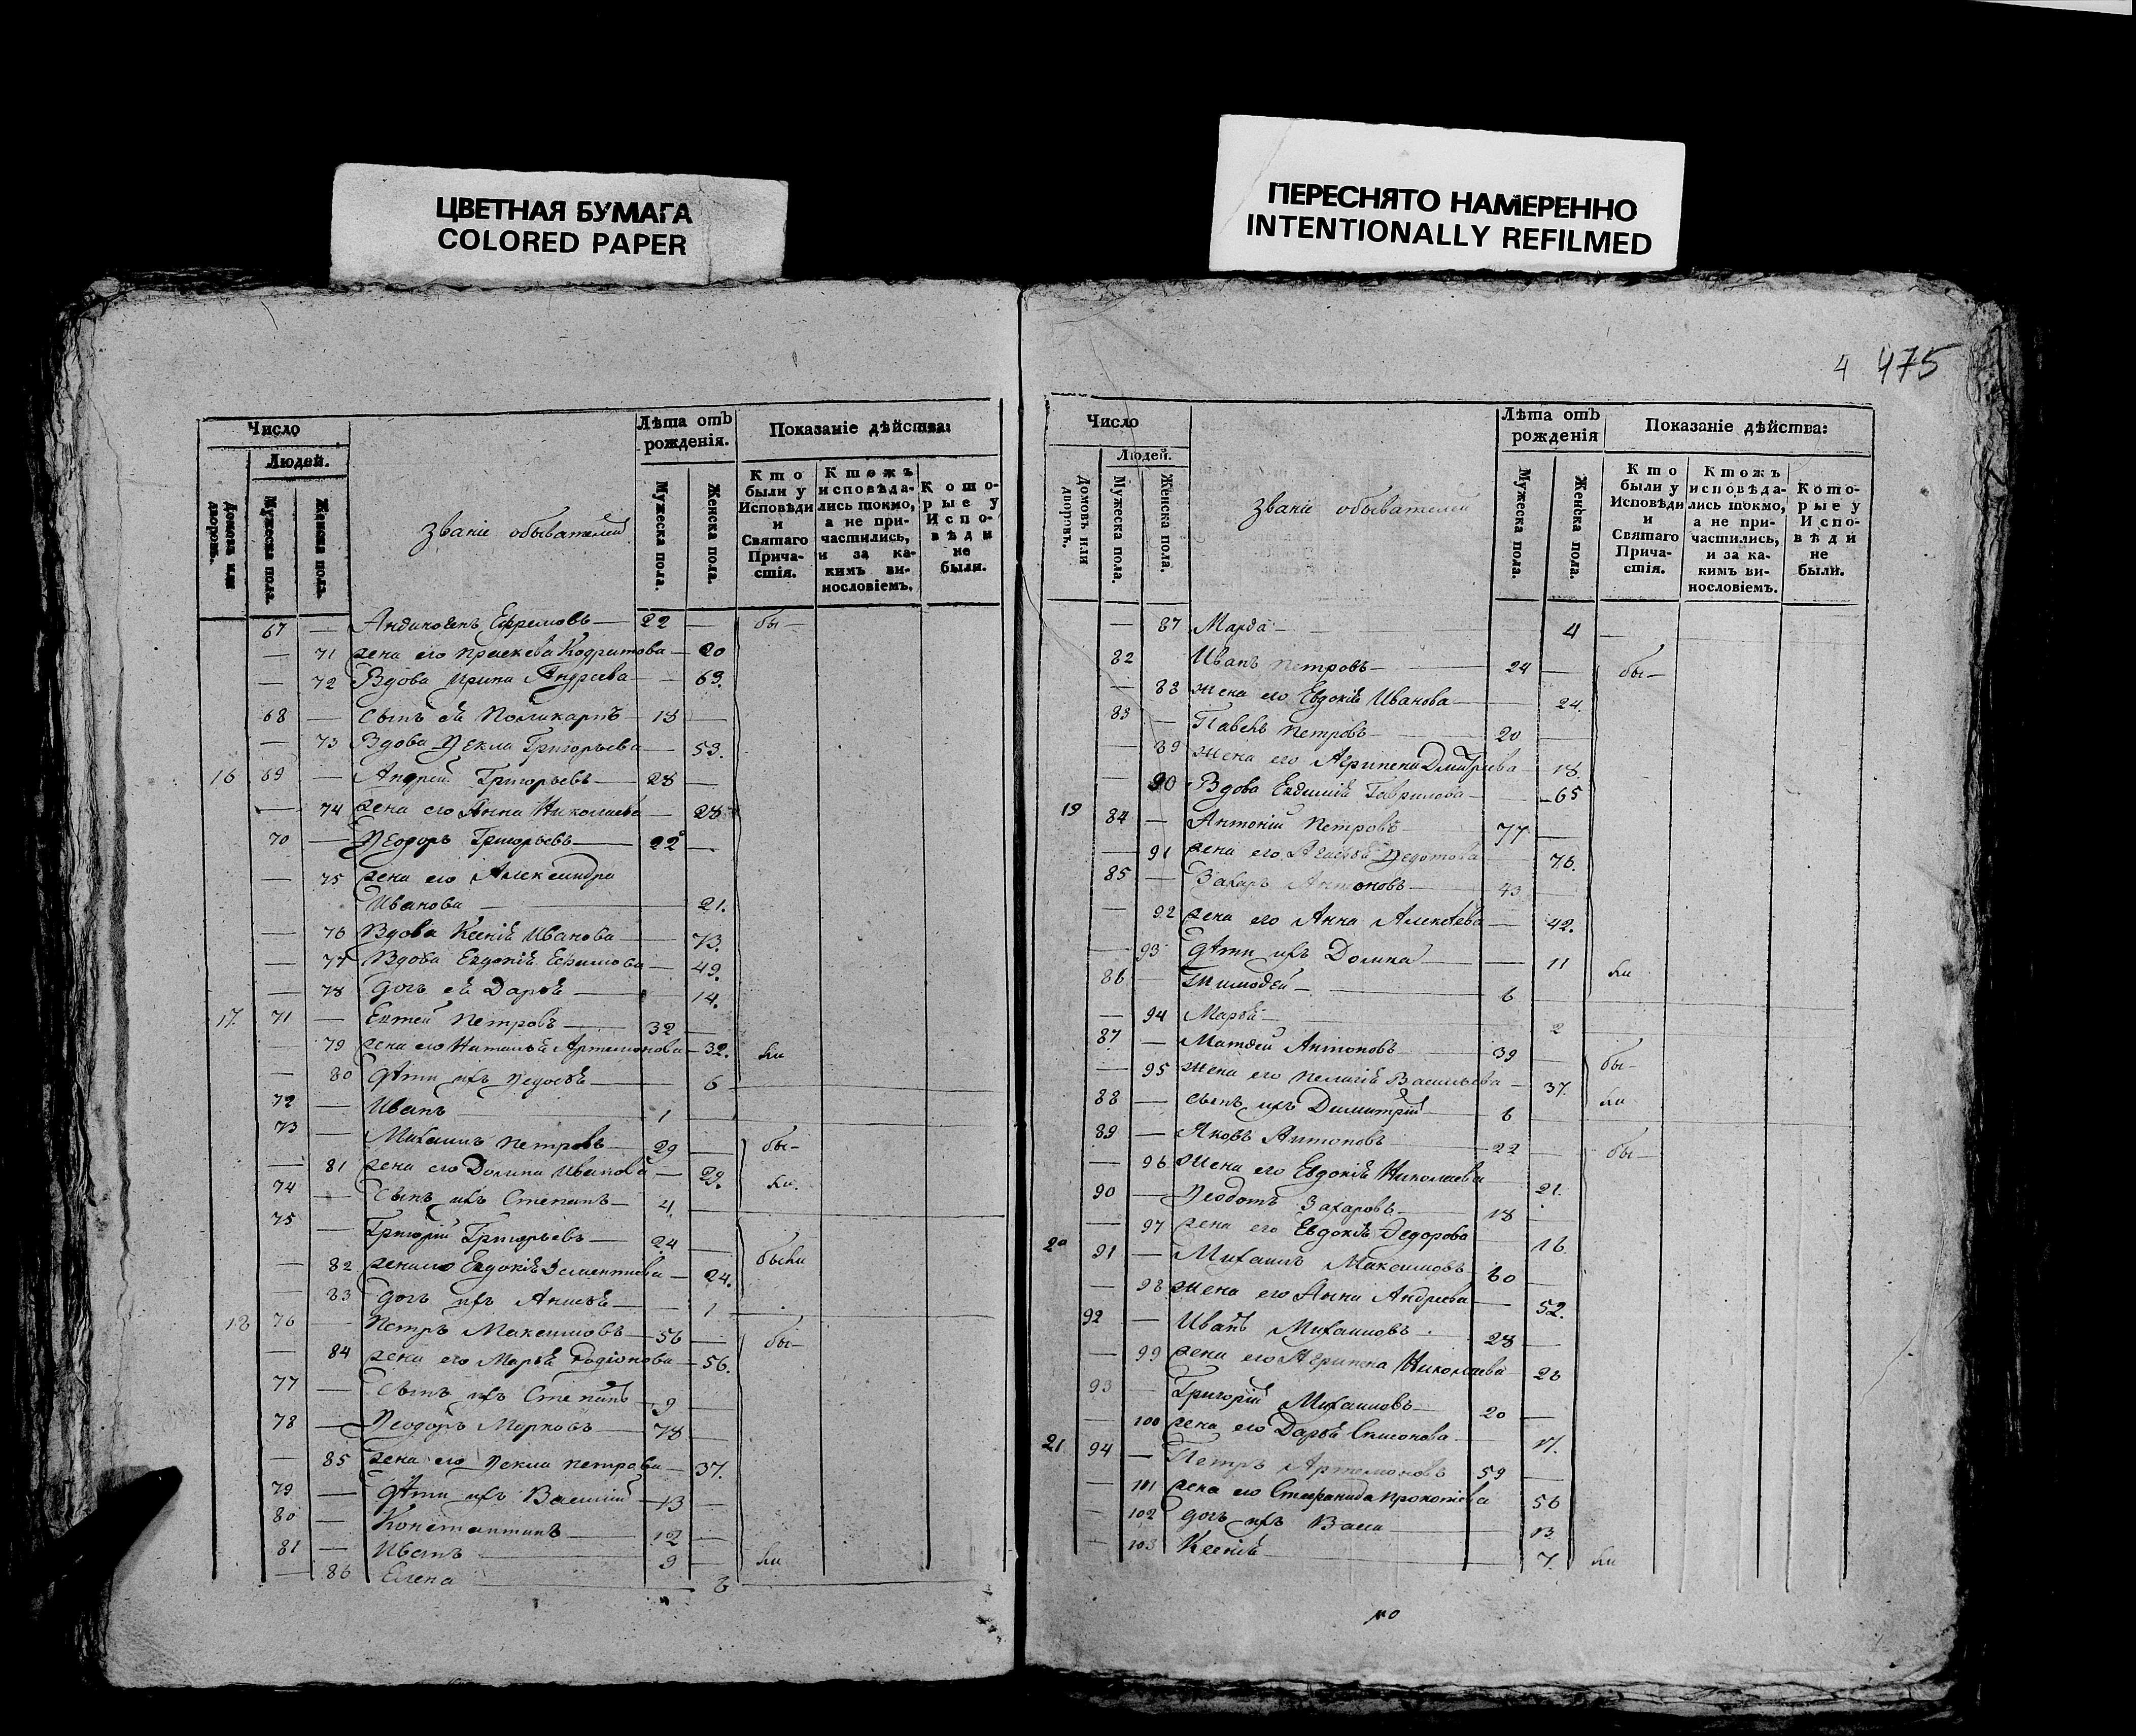 ЦВЕТНАЯ БУМАГА
COLORED PAPER
ПЕРЕСНЯТО НАМЕРЕННО
INTENTIONALLY REFILMED
4 475
Число
Людей.
Домовъ или дворовъ.
Мужеска пола.
Женска пола.
Званіе обывателей
Лѣта отъ рожденія.
Мужеска пола.
Женска пола.
Показаніе дѣйства:
Кто были у Исповѣди и Святаго Причастія.
Ктожъ исповѣдались токмо, а не причастились, и за какимъ винословіемъ.
Которые у Исповѣди не были.
67 — Ефремовъ — 22 — бы—
— 71 жена его — 20
— 72 Вдова Ирина Андреева — 69.
68 — сынъ ей Поликарпъ — 13 —
— 73 Вдова Ѳекла Григорьева — 53.
16 69 — Андрей Григорьевъ — 28 —
— 74 жена его Анна Николаева — 28
70 — Ѳеодоръ Григорьевъ — 22 —
— 75 жена его Александра
Иванова — 21.
— 76 Вдова Ксенія Иванова — 73.
— 77 Вдова Евдокія Ефимова — 49.
— 78 дочь ей Дарья — 14.
17. 71 — Петровъ — 32 —
— 79 жена его Наталья Артемонова — 32. ли
— 80 дѣти ихъ Ѳедосья — 6
72 — Иванъ — 1 —
73 — Михаилъ Петровъ — 29 — бы—
— 81 жена его Домна Иванова — 29. ли.
74 — Сынъ ихъ Степанъ — 4 —
75 — Григорій Григорьевъ — 24 — были
— 82 жена его Евдокія — 24.
— 83 дочь ихъ Анисья — 1
18 76 — Петръ Максимовъ — 56 — бы—
— 84 жена его Марья Родіонова — 56.
77 — Сынъ ихъ Степанъ — 9 —
78 — Ѳеодоръ Марковъ — 78 —
— 85 жена его Ѳекла Петрова — 37.
79 — дѣти ихъ Василій — 13 —
80 — Константинъ — 12 —
81 — Иванъ — 9 — ли
— 86 Елена —
Число
Людей.
Домовъ или дворовъ.
Мужеска пола.
Женска пола.
Званіе обывателей
Лѣта отъ рожденія
Мужеска пола.
Женска пола.
Показаніе дѣйства:
Кто были у Исповѣди и Святаго Причастія.
Ктожъ исповѣдались токмо, а не причастились, и за какимъ винословіемъ.
Которые у Исповѣди не были.
— 87 Марѳа — 4 —
82 Иванъ Петровъ — 24 — бы—
— 88 жена его Евдокія Иванова — 24.
83 — Павелъ Петровъ — 20 —
— 89 жена его Агрипена Дмитріева — 18.
— 90 Вдова Гаврилова — 65
19 84 — Антоній Петровъ — 77 —
— 91 жена его Ѳедотова — 76.
85 — Захаръ Антоновъ — 43 —
— 92 жена его Анна Алексѣева — 42.
— 93 дѣти ихъ Домна — 11 ли
86 — Тимоѳей — 6 —
— 94 Марья — 2
87 — Матѳей Антоновъ — 39 — бы—
— 95 жена его Пелагія Васильева — 37. ли
88 — сынъ ихъ Димитрій — 6 —
89 — Яковъ Антоновъ — 22 — бы—
— 96 жена его Евдокія Николаева — 21.
90 — Ѳеодотъ Захаровъ — 18 —
— 97 жена его Евдокія Ѳедорова — 16.
20 91 — Михаилъ Максимовъ — 60 —
— 98 жена его Анна Андреева — 52.
92 — Иванъ Михаиловъ — 28 —
— 99 жена его Агрипена Николаева — 28
93 — Григорій Михаиловъ — 20 —
— 100 жена его Дарья Симонова — 17.
21 94 — Петръ Артемоновъ 59 —
— 101 жена его Стефанида Прокопіева 56
— 102 дочь ихъ Васса — 13
— 103 Ксенія — 7. ли